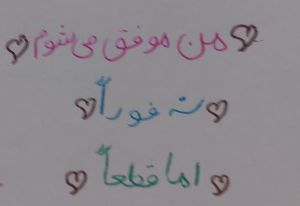 من موفق می شوم
نه فوراً
اما قطعاً